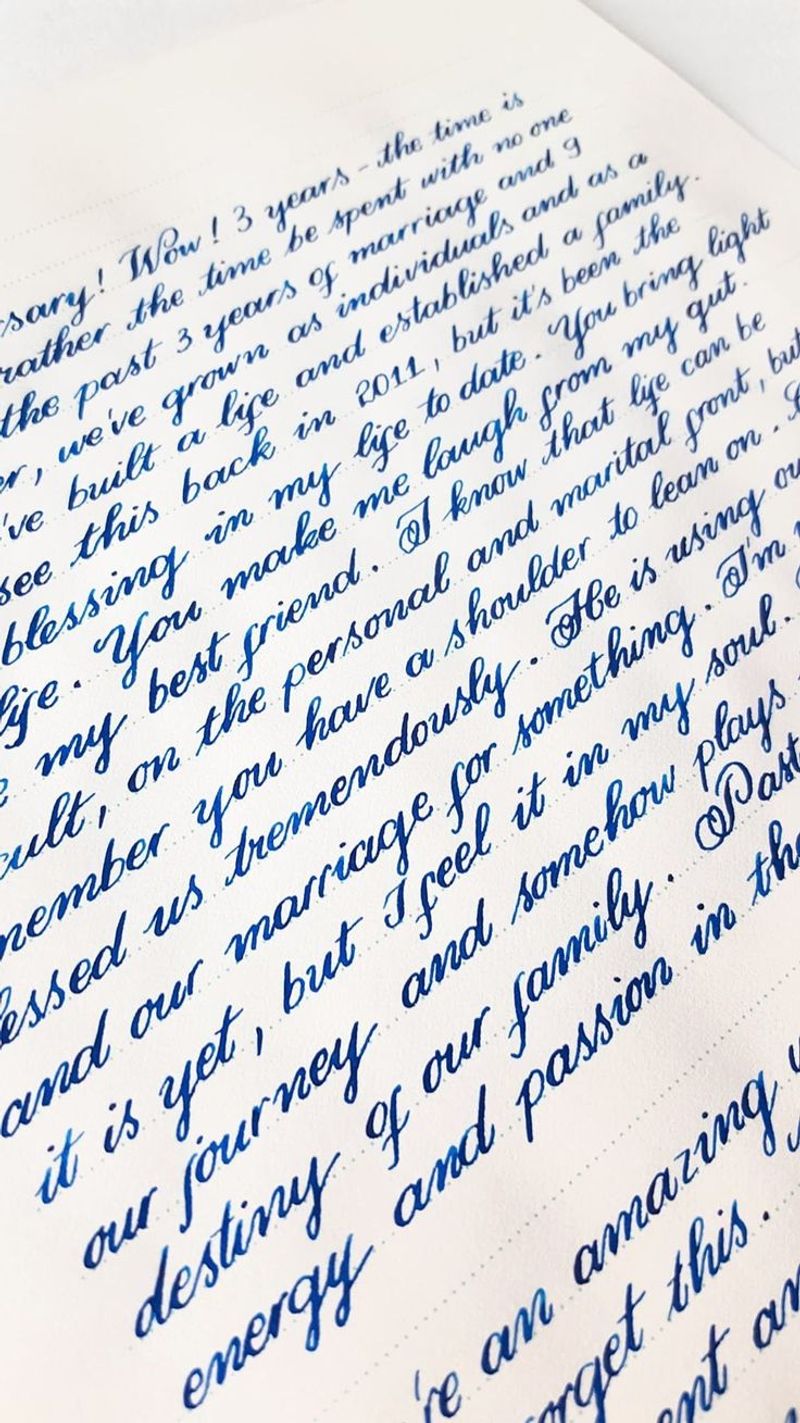 sary! Wow! 3 years - the time is
rather the time be spent with no one
the past 3 years of marriage and 9
er, we've grown as individuals and as a
've built a life and established a family.
see this back in 2011, but it's been the
blessing in my life to date. You bring light
life. You make me laugh from my gut.
my best friend. I know that life can be
cult, on the personal and marital front, but
member you have a shoulder to lean on.
lessed us tremendously. He is using ou
and our marriage for something. I'm
it is yet, but I feel it in my soul.
our journey and somehow plays
destiny of our family. Past
energy and passion in the
're an amazing
orget this.
ent an